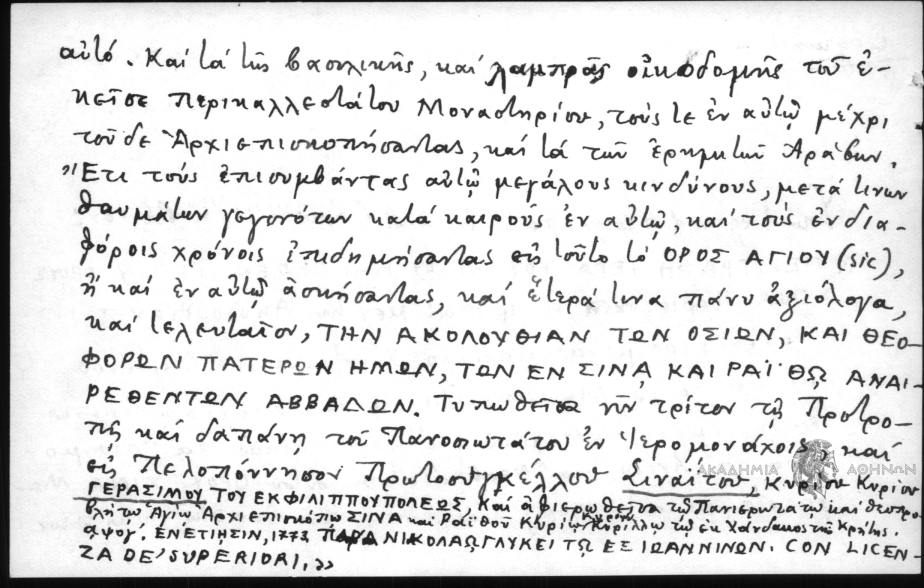 αὐτό. Καί τά τῆς βασιλικῆς, καί λαμπρᾶς οἰκοδομῆς τοῦ ἐ-
κεῖσε περικαλλεστάτου Μοναστηρίου, τούς τε ἐν αὐτῷ μέχρι
τοῦδε Ἀρχιεπισκοπήσαντας, καί τά τῶν ἐρημιτῶν Ἀράβων.
"Ἔτι τούς ἐπισυμβάντας αὐτῷ μεγάλους κινδύνους, μετά τινων
θαυμάτων γεγονότων κατά καιρούς ἐν αὐτῷ, καί τούς ἐν δια-
φόροις χρόνοις ἐπιδημήσαντας εἰς τοῦτο τό ΟΡΟΣ ΑΓΙΟΥ (sic),
ἤ καί ἐν αὐτῷ ἀσκήσαντας, καί ἕτερά τινα πάνυ ἀξιόλογα,
καί τελευταῖον, ΤΗΝ ΑΚΟΛΟΥΘΙΑΝ ΤΩΝ ΟΣΙΩΝ, ΚΑΙ ΘΕΟ-
ΦΟΡΩΝ ΠΑΤΕΡΩΝ ΗΜΩΝ, ΤΩΝ ΕΝ ΣΙΝΑ ΚΑΙ ΡΑΪΘΩ ΑΝΑΙ-
ΡΕΘΕΝΤΩΝ ΑΒΒΑΔΩΝ. Τυπωθεῖσα νῦν τρίτον τῇ Προτρο-
πῇ καί δαπάνῃ τοῦ Πανοσιωτάτου ἐν Ἱερομονάχοις, καί
εἰς Πελοπόννησον Πρωτοσυγκέλλου Σιναΐτου, Κυρίου Κυρίου
ΓΕΡΑΣΙΜΟΥ ΤΟΥ ΕΚ ΦΙΛΙΠΠΟΥΠΟΛΕΩΣ, Καί ἀφιερωθεῖσα τῷ Πανιερωτάτῳ καί θεοπρο-
βλήτῳ Ἁγίῳ Ἀρχιεπισκόπῳ ΣΙΝΑ καί Ραϊθοῦ Κυρίῳ Κυρίῳ Κυρίλλῳ τῷ ἐκ Χάνδακος τῆς Κρήτης.
αψογ΄. ΕΝΕΤΙΗΣΙΝ, 1773. ΠΑΡΑ ΝΙΚΟΛΑΩ ΓΛΥΚΕΙ ΤΩ ΕΞ ΙΩΑΝΝΙΝΩΝ. CON LICEN-
ZA DE' SUPERIORI.»
ΑΚΑΔΗΜΙΑ ΑΘΗΝΩΝ